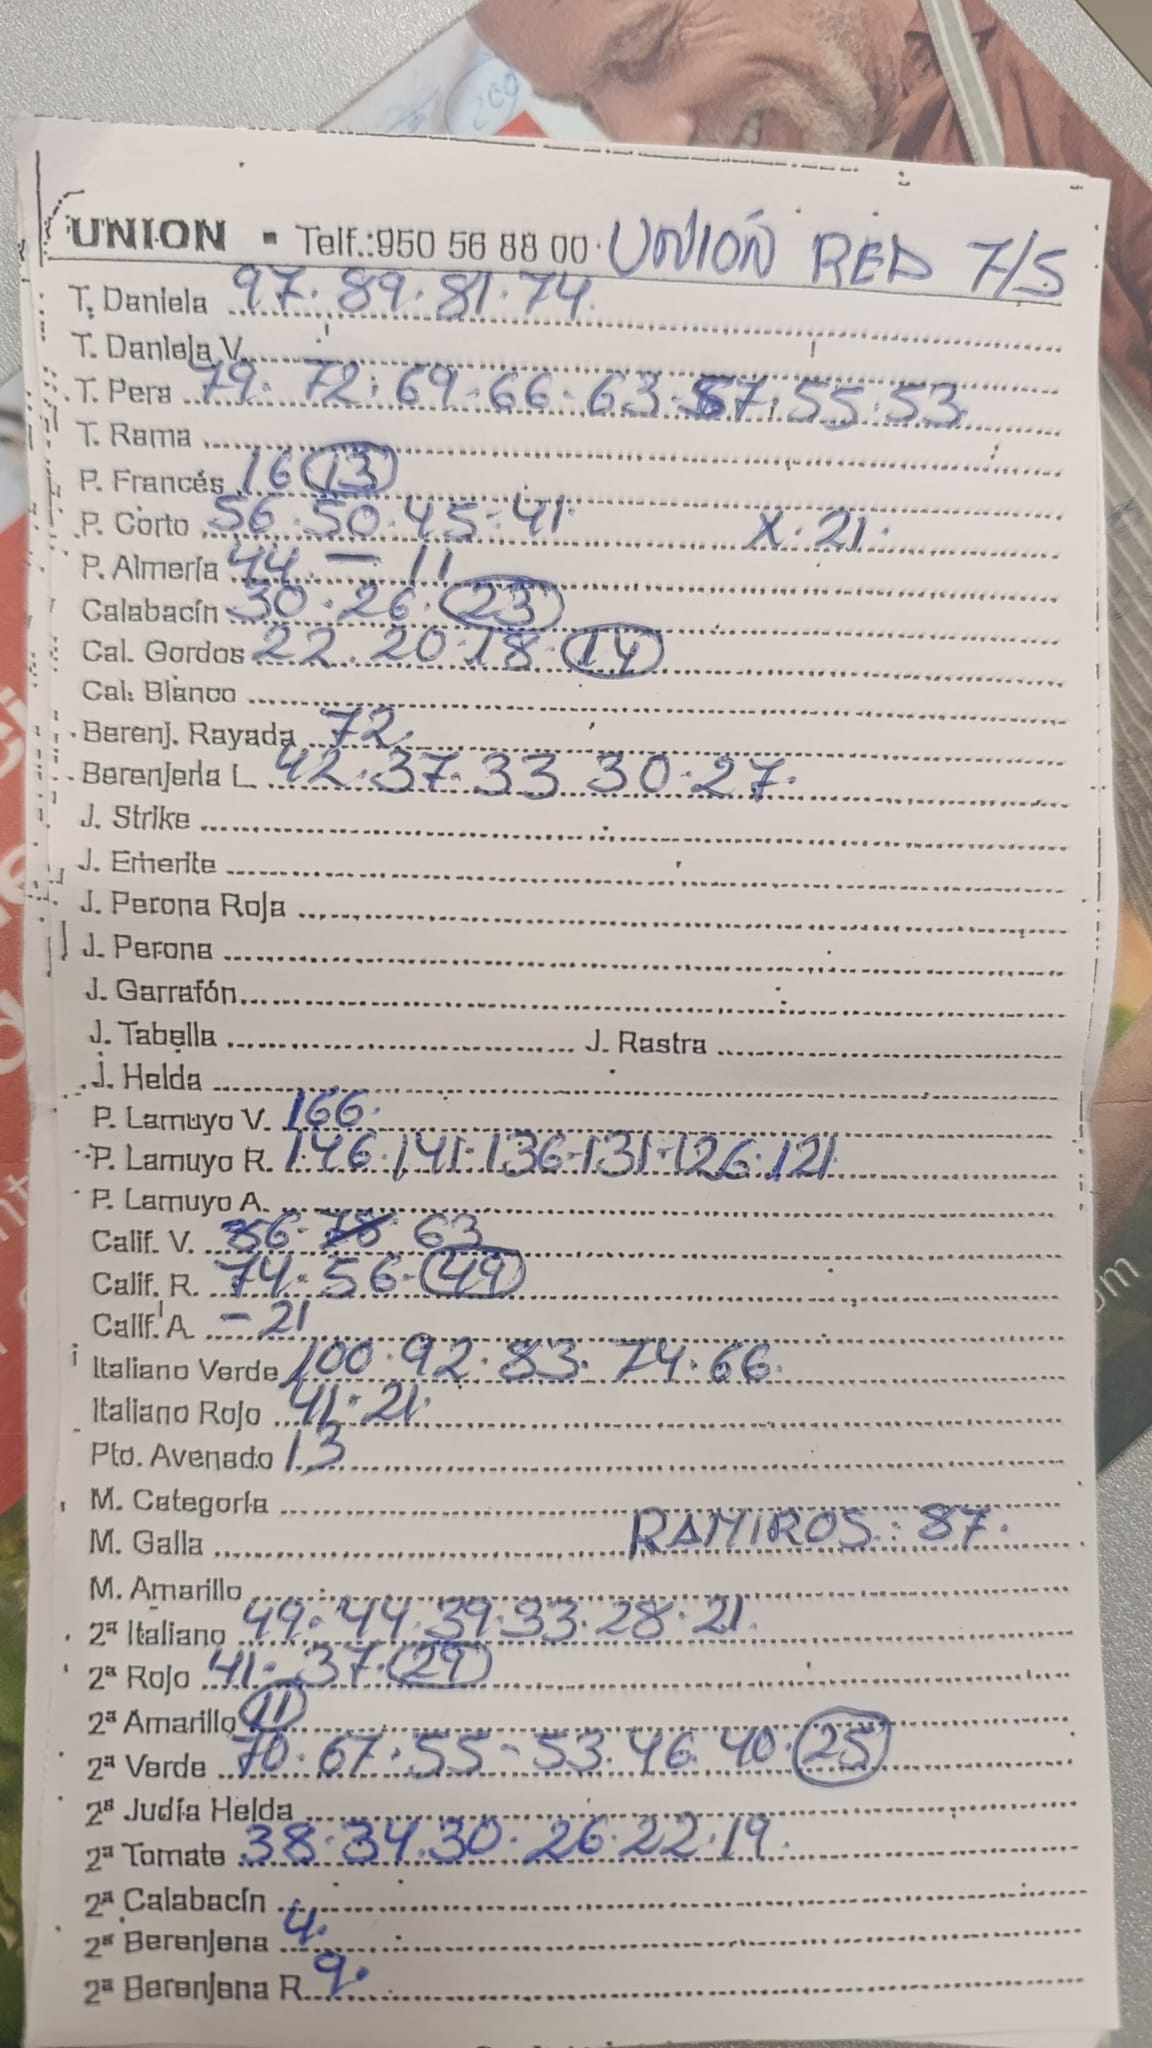 UNION - Telf.:950 56 88 00 · UNIÓN RED 7/5
T. Daniela 97. 89. 81. 74.
T. Daniela V.
T. Pera 79. 72. 69. 66. 63. 57. 55. 53.
T. Rama
P. Francés 16 13
P. Corto 56. 50. 45. 41. X. 21.
P. Almería 44. - 11
Calabacín 30. 26. 23
Cal. Gordos 22. 20. 18. 14
Cal. Blanco
Berenj. Rayada 72.
Berenjena L. 42. 37. 33 30. 27.
J. Strike
J. Emerite
J. Perona Roja
J. Perona
J. Garrafón
J. Tabella J. Rastra
J. Helda
P. Lamuyo V. 166.
P. Lamuyo R. 146. 141. 136-131-126. 121.
P. Lamuyo A.
Calif. V. 86. 78 63
Calif. R. 74. 56. 49
Calif. A. - 21
Italiano Verde 100. 92. 83. 74. 66.
Italiano Rojo 41. 21.
Pto. Avenado 13
M. Categoría
M. Galla RAMIROS: 87.
M. Amarillo
2ª Italiano 49. 44. 39. 33. 28. 21.
2ª Rojo 41. 37. 29
2ª Amarillo 11
2ª Verde 70. 67. 55 - 53. 46. 40. 25
2ª Judía Helda
2ª Tomate 38. 34. 30. 26. 22. 19.
2ª Calabacín
2ª Berenjena 4.
2ª Berenjena R. 9.